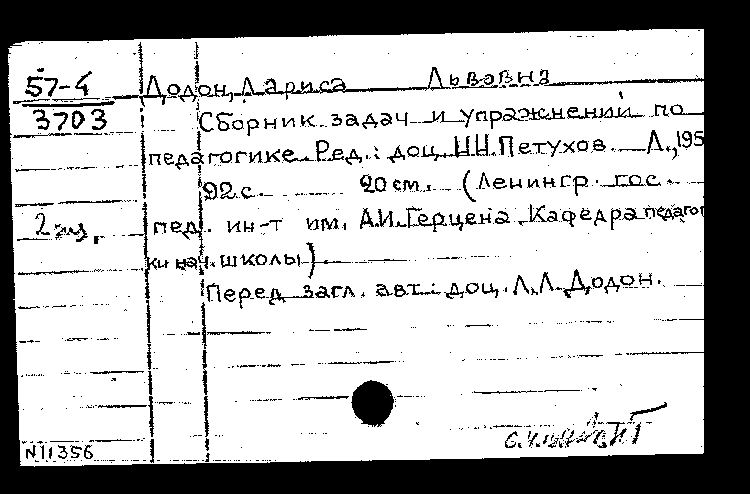 57-4 Додон, Лариса Львовна
3703 Сборник задач и упражнений по
педагогике. Ред.: доц. Н.Н. Петухов. Л., 195
92 с. 20 см. (Ленингр. гос.
2 экз. пед. ин-т им. А.И. Герцена. Кафедра педагог
ки нач. школы).
Перед загл. авт.: доц. Л.Л. Додон.
N11356